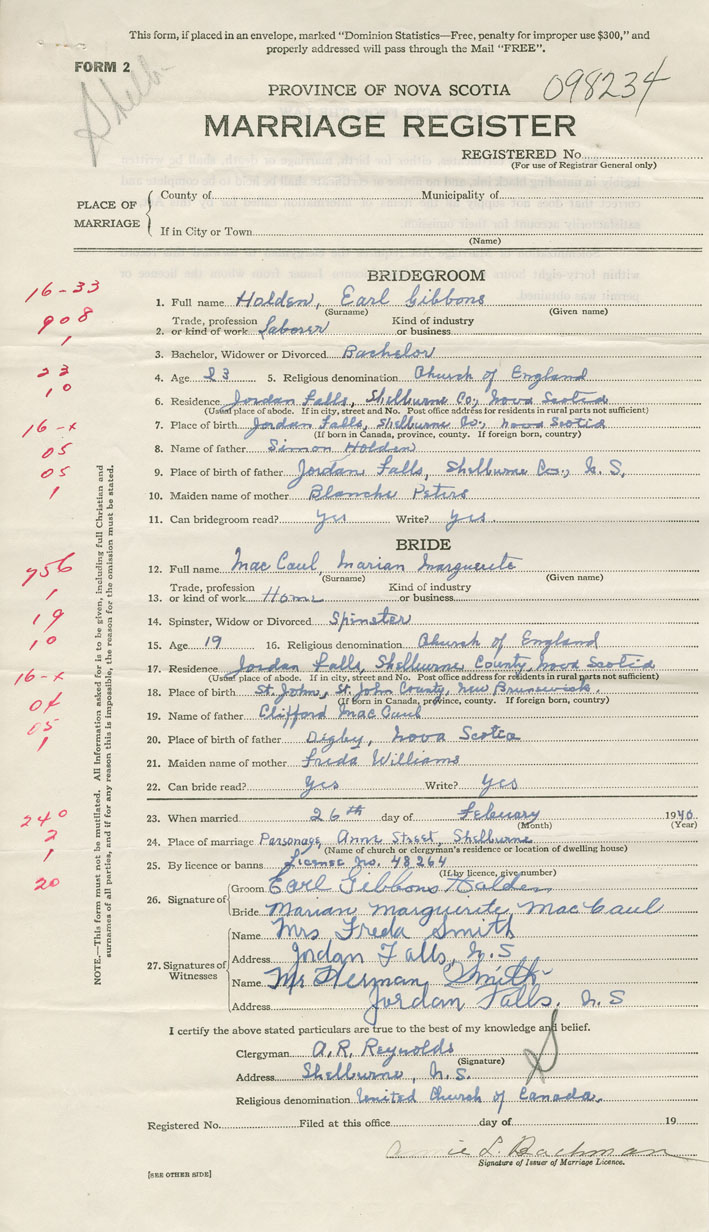 This form, if placed in an envelope, marked "Dominion Statistics—Free, penalty for improper use $300," and
properly addressed will pass through the Mail "FREE".
FORM 2
Shelb
PROVINCE OF NOVA SCOTIA
098234
MARRIAGE REGISTER
REGISTERED No.
(For use of Registrar General only)
PLACE OF MARRIAGE
County of Municipality of
If in City or Town
(Name)
BRIDEGROOM
16-33
1. Full name Holden, Earl Gibbons
(Surname) (Given name)
908
Trade, profession Kind of industry
2. or kind of work Laborer or business
1
3. Bachelor, Widower or Divorced Bachelor
23
4. Age 23 5. Religious denomination Church of England
10
6. Residence Jordan Falls, Shelburne Co., Nova Scotia
(Usual place of abode. If in city, street and No. Post office address for residents in rural parts not sufficient)
16-x
7. Place of birth Jordan Falls, Shelburne Co., Nova Scotia
(If born in Canada, province, county. If foreign born, country)
05
8. Name of father Simon Holden
05
9. Place of birth of father Jordan Falls, Shelburne Co., N.S.
1
10. Maiden name of mother Blanche Peters
11. Can bridegroom read? yes Write? yes.
BRIDE
756
12. Full name Mac Caul, Marian Marguerite
(Surname) (Given name)
1
Trade, profession Kind of industry
13. or kind of work Home or business
19
14. Spinster, Widow or Divorced Spinster
10
15. Age 19 16. Religious denomination Church of England
17. Residence Jordan Falls, Shelburne County, Nova Scotia
(Usual place of abode. If in city, street and No. Post office address for residents in rural parts not sufficient)
16-x
18. Place of birth St. John, St. John County, New Brunswick.
(If born in Canada, province, county. If foreign born, country)
19. Name of father Clifford Mac Caul
05
20. Place of birth of father Digby, Nova Scotia
1
21. Maiden name of mother Freda Williams
22. Can bride read? Yes Write? Yes
240
23. When married 26th day of Febuary 1940
(Month) (Year)
2
24. Place of marriage Parsonage, Anne Street, Shelburne
(Name of church or clergyman's residence or location of dwelling house)
1
25. By licence or banns License No. 48264
(If by licence, give number)
20
26. Signature of
Groom Earl Gibbons Holden
Bride Marian Marguerite Mac Caul
27. Signatures of Witnesses
Name Mrs Freda Smith
Address Jordan Falls, N.S
Name Mr Herman Smith
Address Jordan Falls. N S
I certify the above stated particulars are true to the best of my knowledge and belief.
Clergyman A. R. Reynolds
(Signature)
Address Shelburne, N.S.
Religious denomination United Church of Canada.
Registered No. Filed at this office day of 19
Annie L. Bachman
Signature of Issuer of Marriage Licence.
[SEE OTHER SIDE]
NOTE.—This form must not be mutilated. All information asked for is to be given, including full Christian and
surnames of all parties, and if for any reason this is impossible, the reason for the omission must be stated.